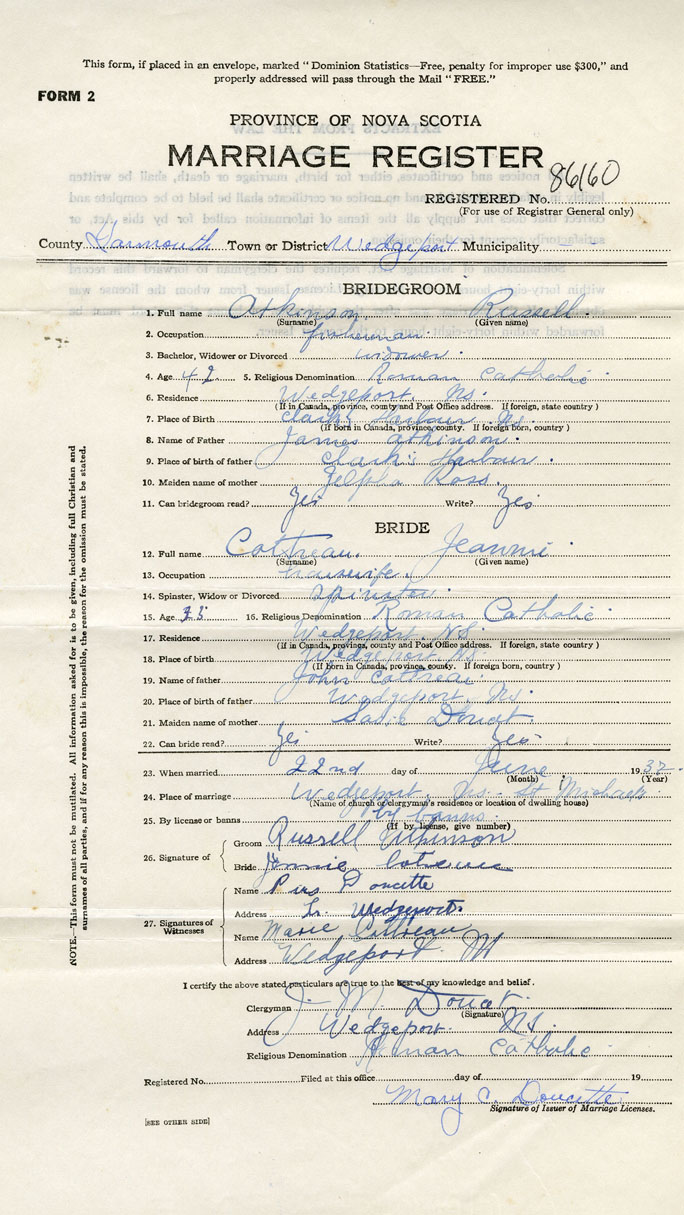 This form, if placed in an envelope, marked "Dominion Statistics—Free, penalty for improper use $300," and
properly addressed will pass through the Mail "FREE."
FORM 2
PROVINCE OF NOVA SCOTIA
MARRIAGE REGISTER
REGISTERED No. 86160
(For use of Registrar General only)
County Yarmouth Town or District Wedgeport Municipality
BRIDEGROOM
1. Full name Atkinson, Russell.
(Surname) (Given name)
2. Occupation fisherman.
3. Bachelor, Widower or Divorced widower.
4. Age 42. 5. Religious Denomination Roman Catholic.
6. Residence Wedgeport, Ns.
(If in Canada, province, county and Post Office address. If foreign, state country)
7. Place of Birth Clark's Harbour Ns.
(If born in Canada, province, county. If foreign born, country)
8. Name of Father James Atkinson.
9. Place of birth of father Clark's Harbour.
10. Maiden name of mother Ross.
11. Can bridegroom read? Yes Write? Yes
BRIDE
12. Full name Cottreau. Jeannie.
(Surname) (Given name)
13. Occupation housewife.
14. Spinster, Widow or Divorced Spinster.
15. Age 16. Religious Denomination Roman Catholic.
17. Residence Wedgeport, NS.
(If in Canada, province, county and Post Office address. If foreign, state country)
18. Place of birth Wedgeport Ns.
(If born in Canada, province, county. If foreign born, country)
19. Name of father John Cottreau.
20. Place of birth of father Wedgeport, Ns.
21. Maiden name of mother Sadie Doucet
22. Can bride read? Yes Write? Yes.
23. When married 22nd day of June 19
(Month) (Year)
24. Place of marriage Wedgeport, Ns. St Michaels.
(Name of church or clergyman's residence or location of dwelling house)
25. By license or banns by banns.
(If by license, give number)
26. Signature of
Groom Russell Atkinson
Bride Jennie
27. Signatures of Witnesses
Name Pius Doucette
Address Lr. Wedgeport.
Name Marie Cottreau
Address Wedgeport.
I certify the above stated particulars are true to the best of my knowledge and belief.
Clergyman J. M. Doucet.
(Signature)
Address Wedgeport. Ns.
Religious Denomination Roman Catholic
Registered No. Filed at this office day of 19
Mary C. Doucette
Signature of Issuer of Marriage Licenses.
[SEE OTHER SIDE]
NOTE.—This form must not be mutilated. All information asked for is to be given, including full Christian and
surnames of all parties, and if for any reason this is impossible, the reason for the omission must be stated.